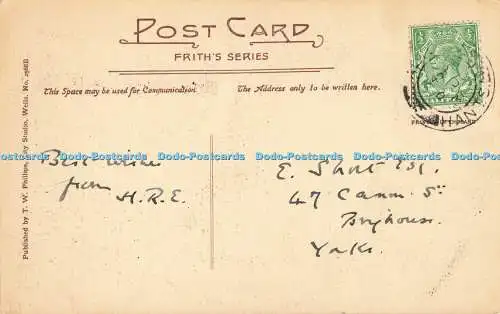 POST CARD
FRITH'S SERIES
This Space may be used for Communication.
The Address only to be written here.
Published by T. W. Phillips, City Studio, Wells. No.
Dodo-Postcards Dodo-Postcards Dodo-Postcards Dodo-Postcards Dodo-Postcards
Best wishes
from
H.R.E.
E. Short Esq.
47 Camm St
Brighouse
Yorks.